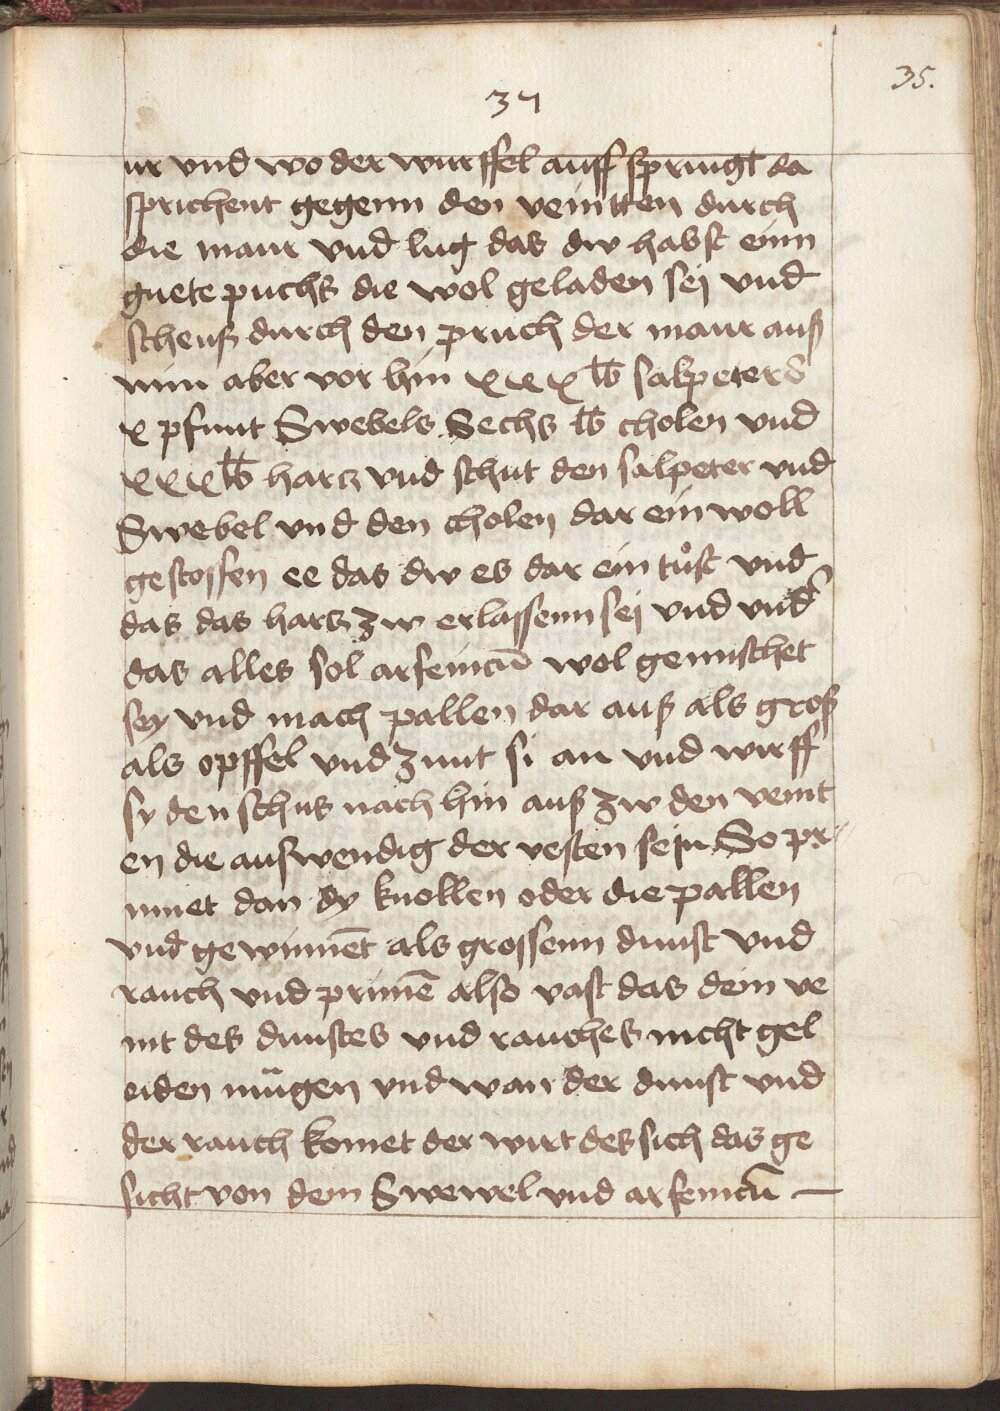 35.
37
ur vnd wo der wurffel auff springt da
sprichent gegenn den veintten durch
die maur vnd lug das dw habst einn
guete puchs die wol geladen sej vnd
scheuß durch den pruch der maur auß
nim aber vor hin xxx ℔ salpeters
x pfunt Swebels Sechs ℔ cholen vnd
xxx ℔ harcz vnd schut den salpeter vnd
Swebel vnd den cholen dar ein woll
gestossen ee das dw es dar ein tůst vnd
das das harcz zw erlassenn sej vnd vnd
das alles sol arsenicū wol gemischet
sey vnd mach pallen dar auß als groß
als opffel vnd zunt si an vnd wirff
sy den schus nach hin auß zw den veint
en die auswendig der vesten sein So pri
nnet dan dy knollen oder die pallen
vnd gewinnēt als grossenn dunst vnd
rauch vnd prinnē also vast das dein ve
int des dunstes vnd rauches nicht gel
eiden mügen vnd wan der dunst vnd
der rauch komet der wirt des sich das ge
sicht von dem Swewel vnd arsenicū —